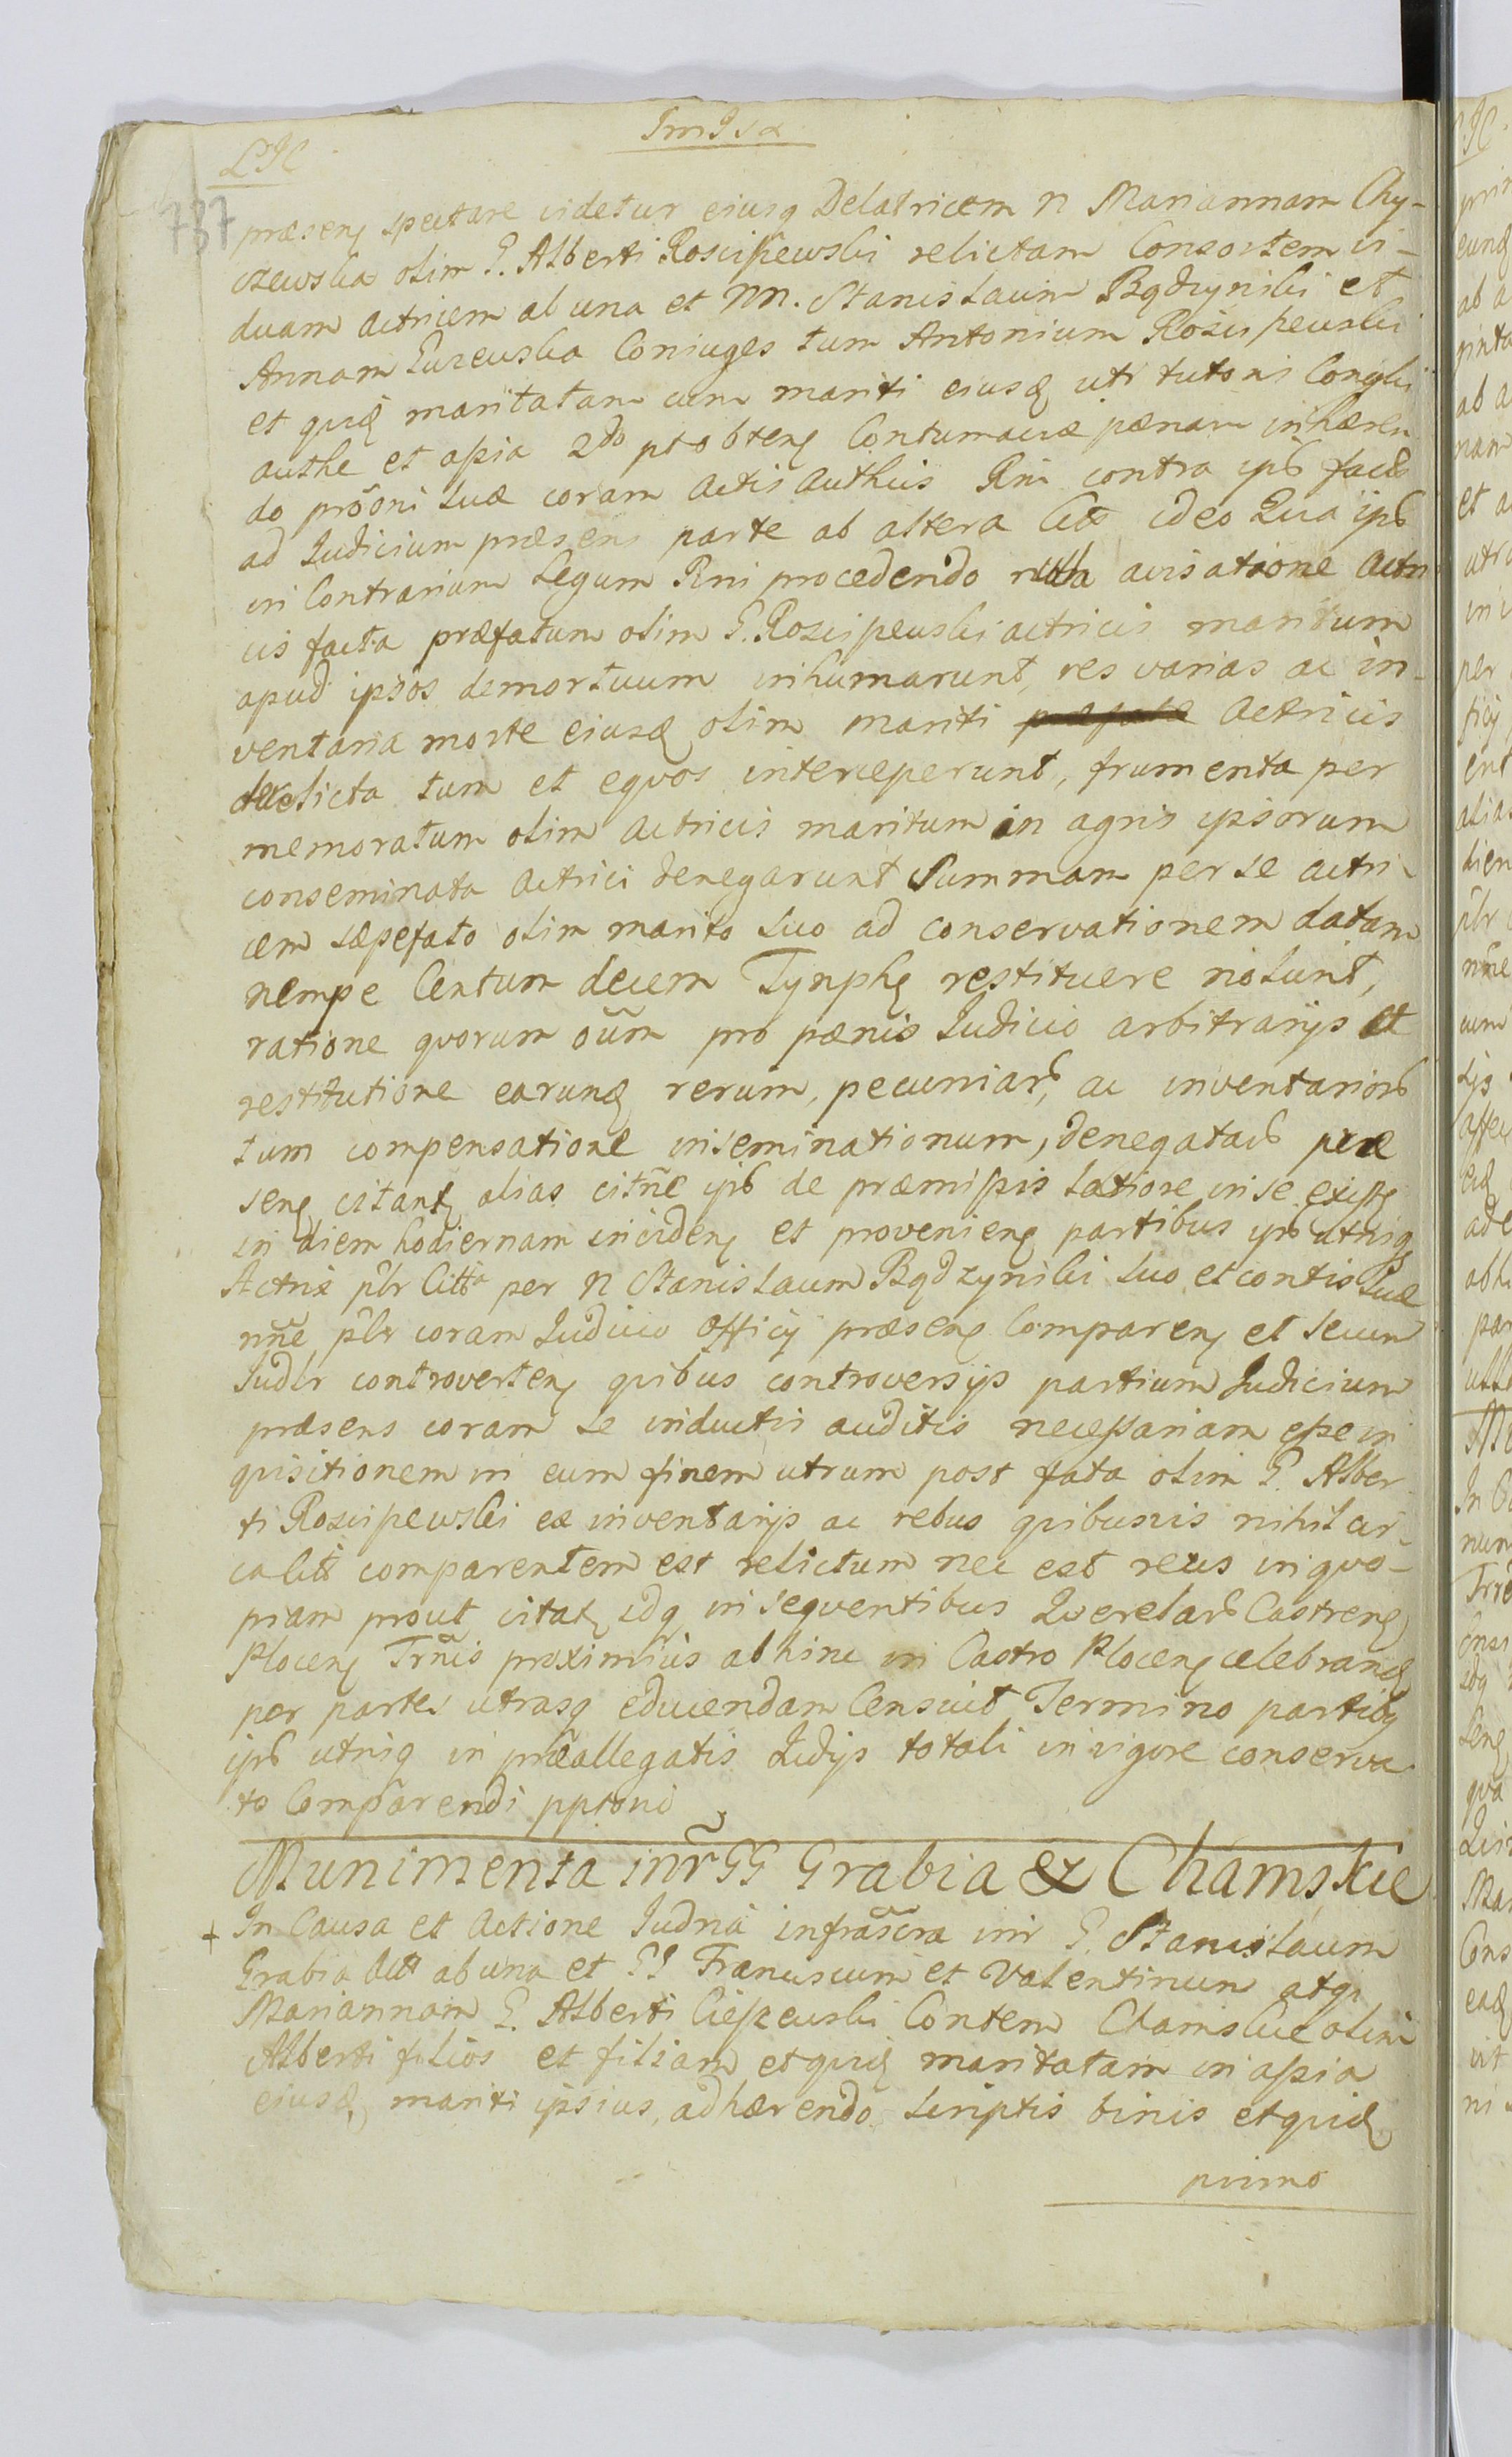 737
præsenț spectare videtur eiusq Delatricem N Mariannam Chy-
czewska olim G. Alberti Roscipewski relictam Consortem vi-
duam actricem ab una et NN. Stanislaum Bądzynski et
Annam Zurewska Coniuges tum Antonium Roscipewski
et quidę maritatam cum mariti eiusdę uti tutoris Conglii
authe et assia 2do pt obtenę Contumaciæ pænam inhæren
do prõoni suæ coram Actis Authcis Rni contra ipõs factæ
ad Judicium præsens parte ab altera Citõs ideo Quia ipõs
in Contrarium Legum Rni procedendo nulla avisatione Actri
cis facta præfatum olim G. Roscipewski actricis maritum
apud ipsos demortuum inhumarunt, res varias ac in-
ventaria morte eiusdę olim mariti Actricis
derelicta tum et eqvos interceperunt, frumenta per
memoratum olim Actricis maritum in agris ipsorum
conseminata Actrici denegarunt Summam per se actri-
cem sæpefato olim marito suo ad conservationem datam
nempe Centum decem Tynphę restituere nolunt,
ratione qvorum oũm pro pænis Judicio arbitrarijs et
restitutione earundę rerum, pecuniarũ, ac inventariorũ
tum compensatione inseminationum, denegatarũ præ
senę citantę alias citñe ipõs de præmissis latiore in se existę
in diem hodiernam incidenę et provenienę partibus ipõs utrisq
Actrix pblr Citta per N Stanislaum Bądzynski suo et contis suæ
nñe pblr coram Judicio Officij præsenę Comparenę et secum
Judlr controvertenę qvibus controversijs partium Judicium
præsens coram se inductis auditis necessariam esse in
qvisitionem in eum finem utrum post fata olim G. Alber
ti Roscipewski ex inventarijs ac rebus qvibusvis nihil ci-
ca litõ comparentem est relictum nec est reus in qvo-
piam prout citatę idq in seqventibus Querelarũ Castrenę
Plocenę Trñis proximius abhinc in Castro Plocenę celebrandę
per partes utrasq educendam Censuit Termino partibus
ipõs utrisq in præallegatis Judijs totali in vigore conserva
to Comparendi pptõni
Munimenta inr̃ GG Grabia & Chamskie
+ In Causa et Actione Judria infrascra inr G. Stanislaum
Grabia Act ab una et GG Franciscum et Valentinum atq
Mariannam G. Alberti Cieszewski Contem Chamskie olim
Alberti filios et filiam et quidę maritatam in assia
eiusdę mariti ipsius, adhærendo scriptis binis et quidę
primo